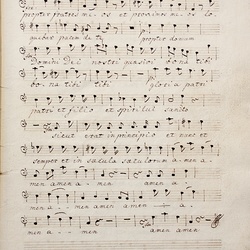 propter fratres me os et proximos me os lo
quebar pacem de te propter domum
Domini Dei nostri quaesivi bona tibi
bona tibi tibi gloria patri
patri et filio et spiritui sancto
sicut erat in principio et nunc et
semper et in saecula saeculorum amen a
men amen a men amen a
men amen amen amen a
men amen